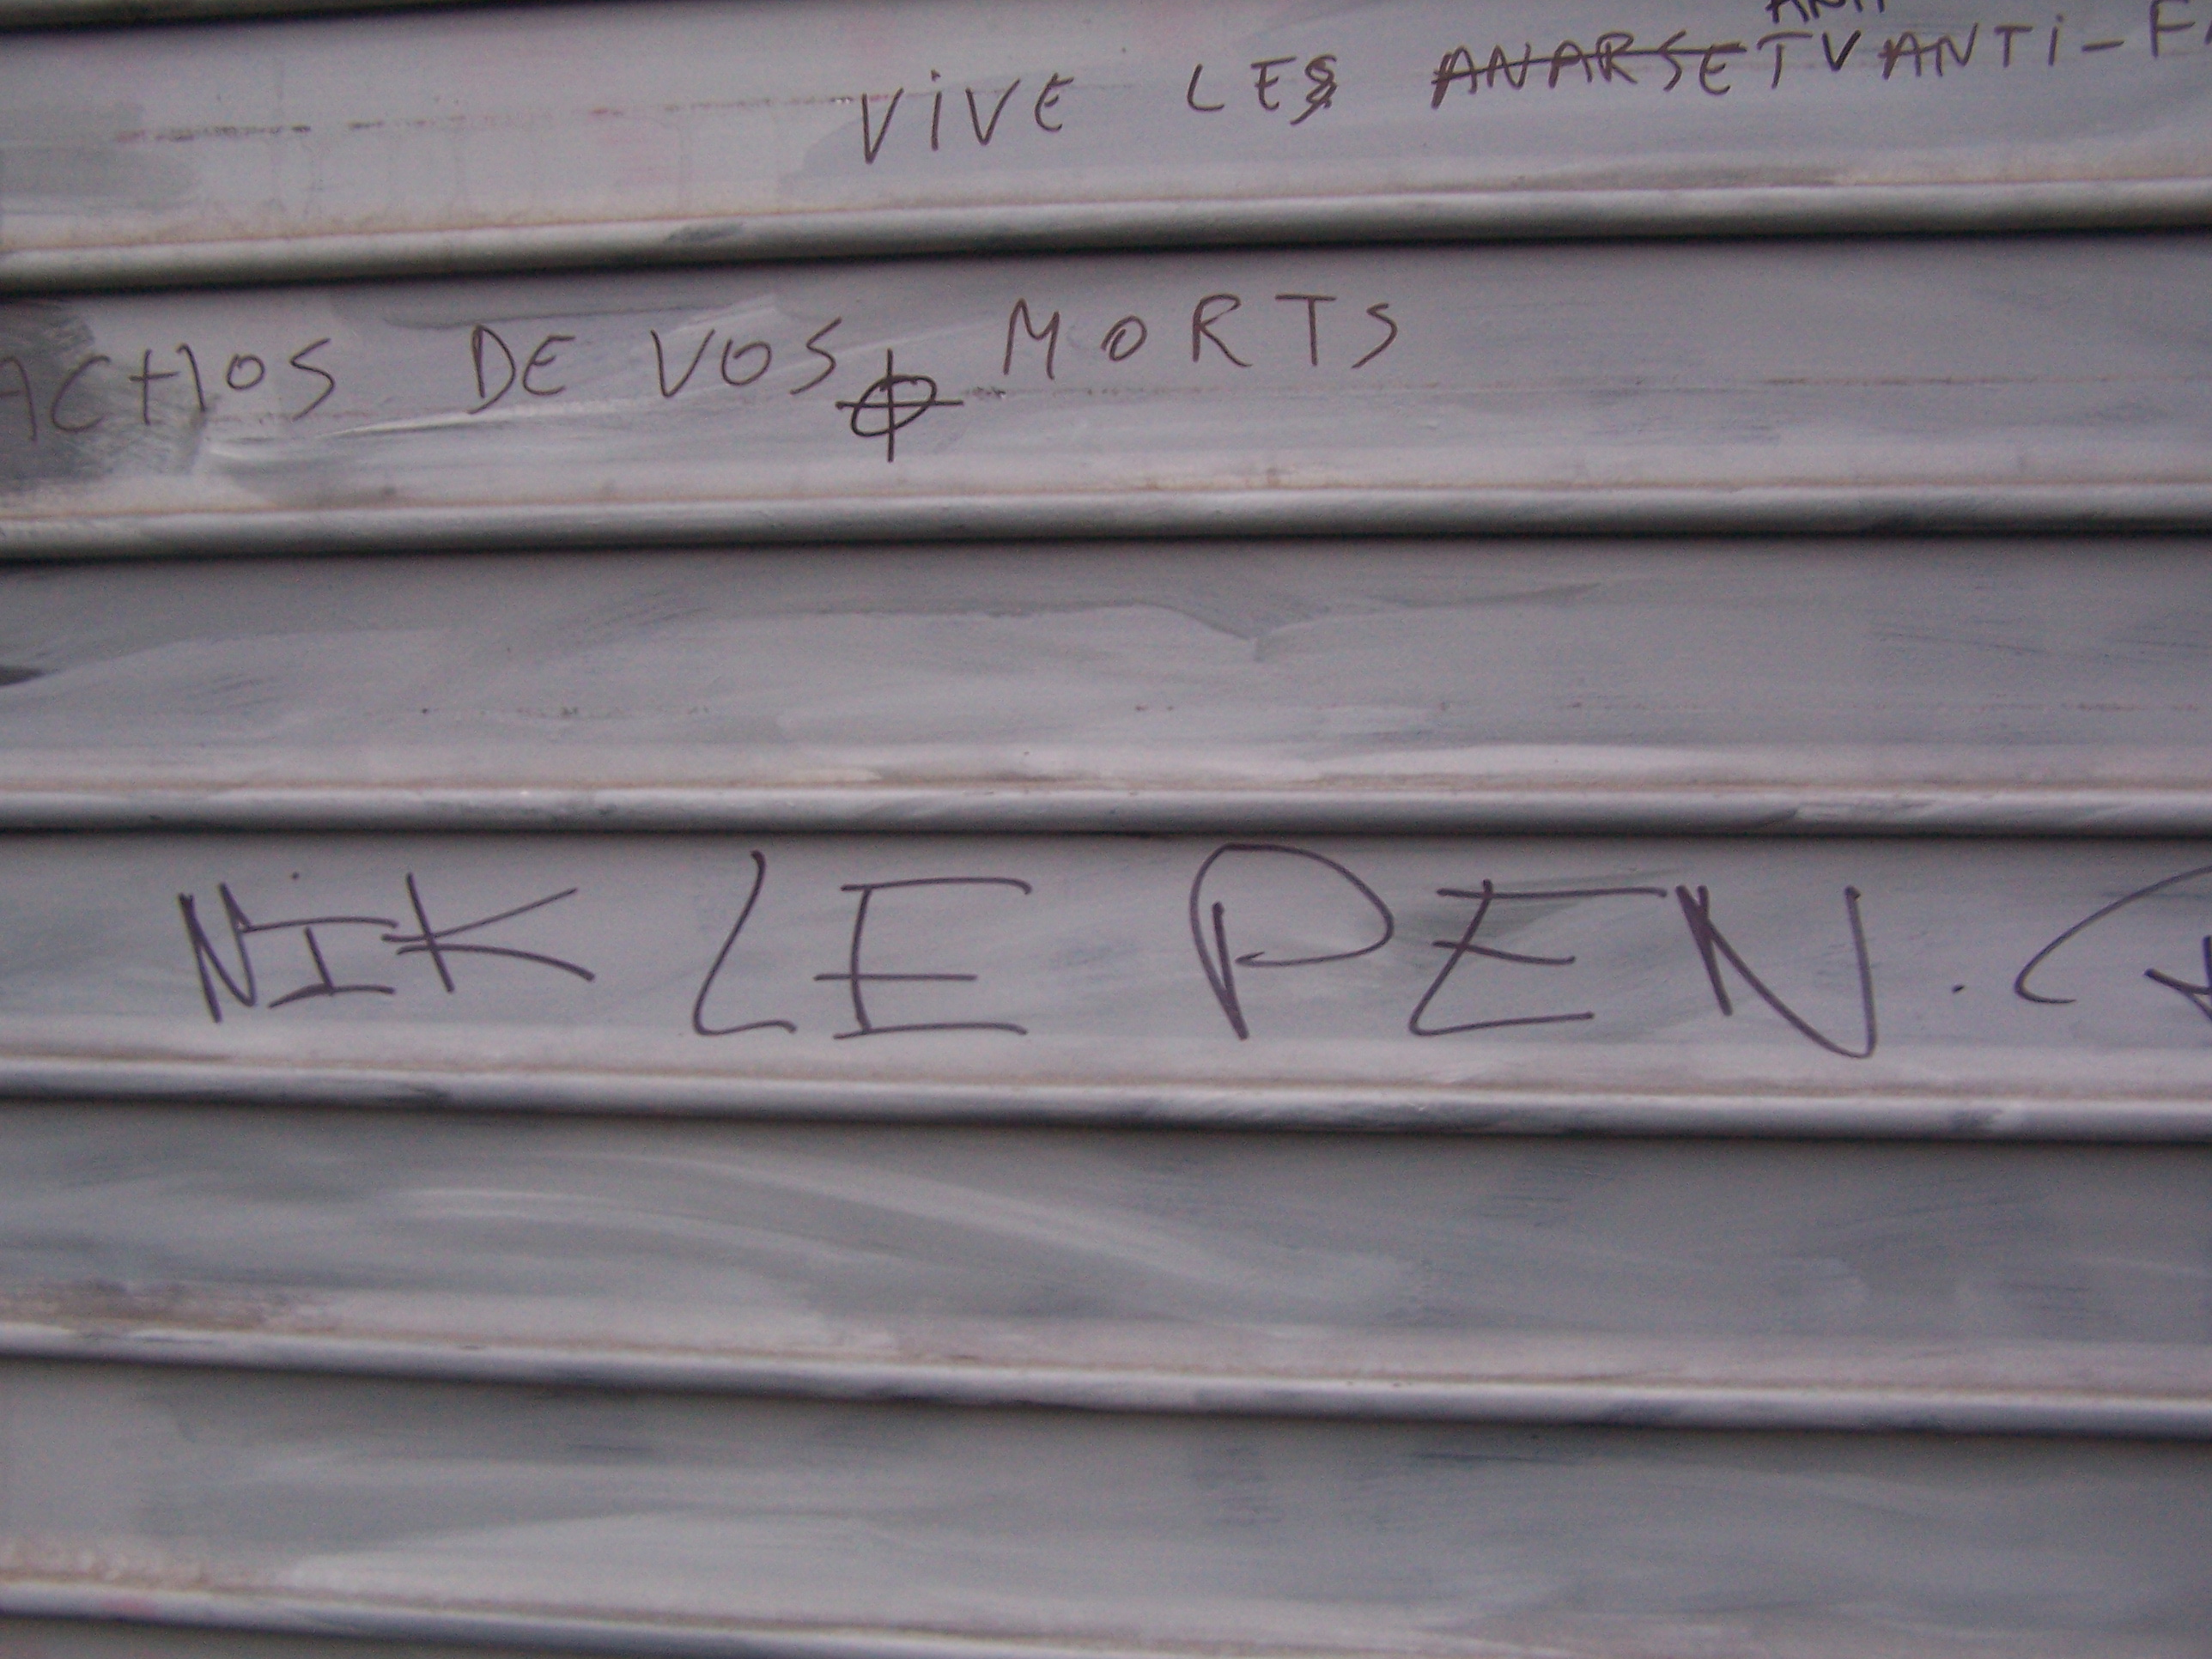 VIVE LES ANARS ET V ANTI-FA
ACHOS DE VOS MORTS
NIK LE PEN.